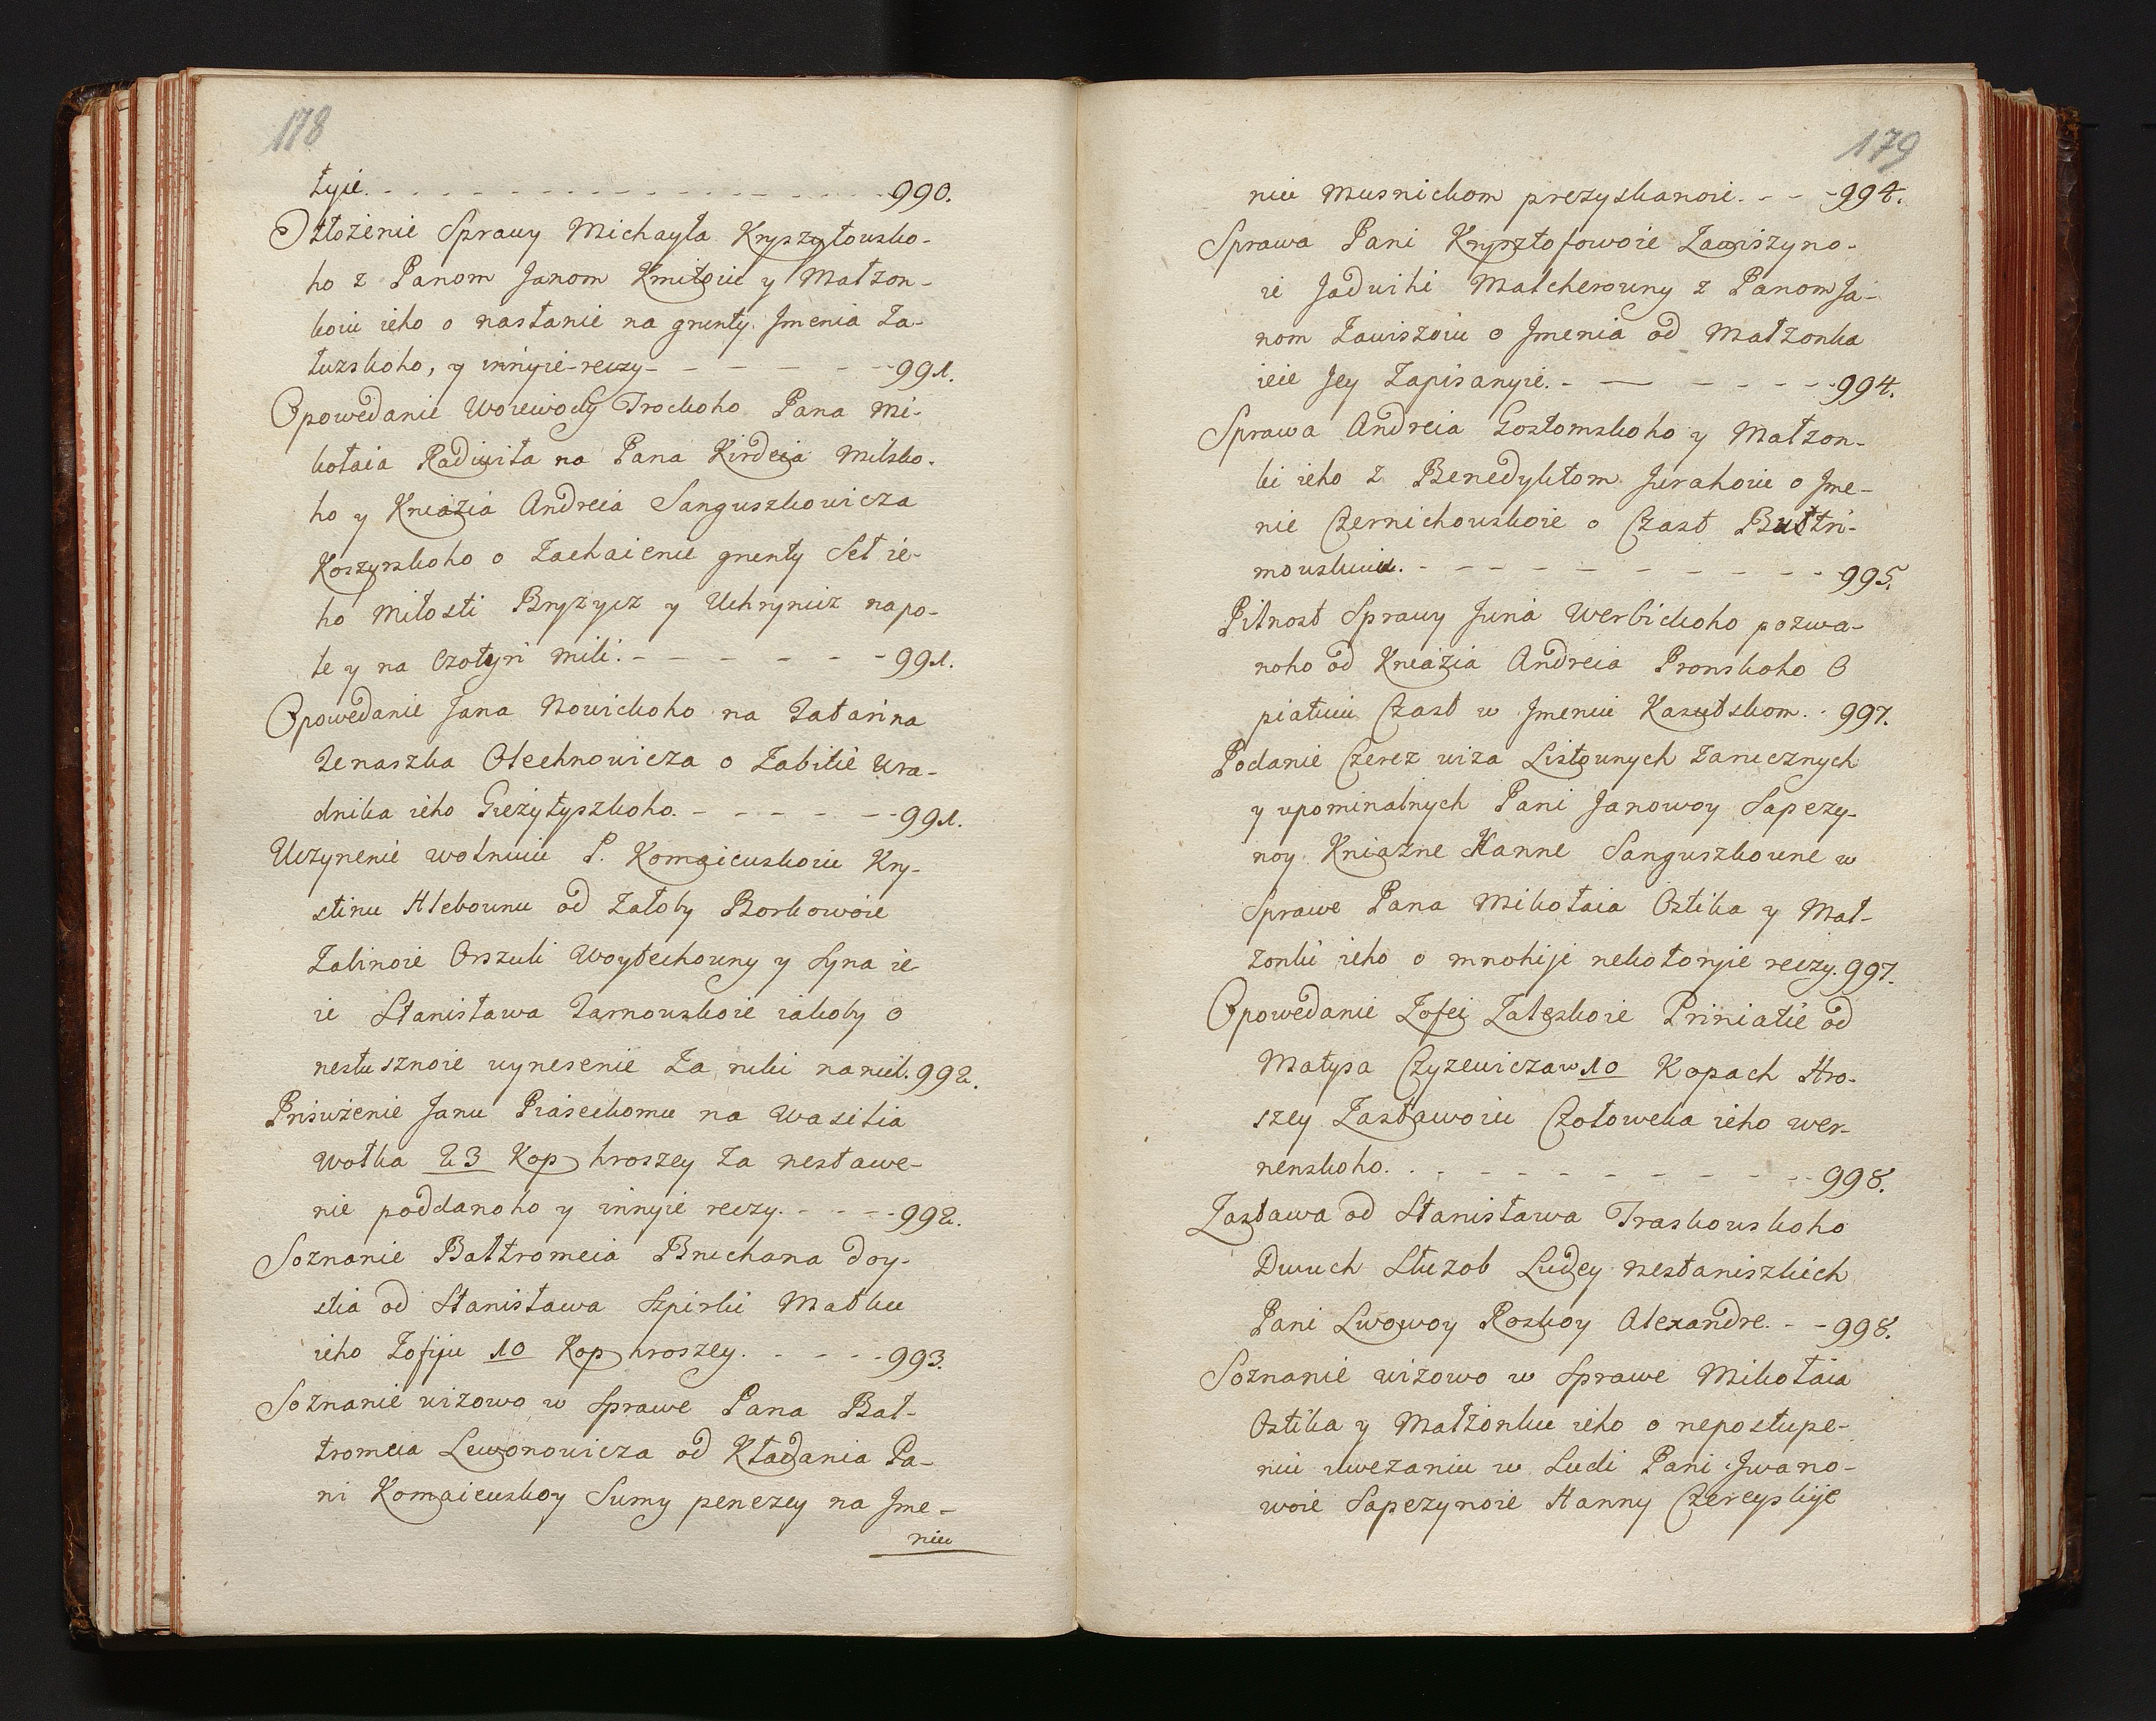 178
łyie. - - - - - - - - - - - - - - 990.
Otłożenie Sprawy Michayła Kryszyłowsko-
ho z Panom Janom Kmitoiu y Małzon-
koiu ieho o nastanie na grunty Jmenia Za-
łuzskoho, y innyie reczy - - - - - - 991.
Opowedanie Woiewody Trockoho Pana Mi-
kołaia Radiwiła na Pana Kirdeia Milsko-
ho y Kniazia Andreia Sanguszkowicza
Koszyrskoho o Zachaienie grunty Seł ie-
ho Miłosti Bryzycz y Uhrynicz napo-
le y na Czołyri mili. - - - - - - 991.
Opowedanie Jana Nowickoho na Tatarina
Tenaszka Olechnowicza o Zabitie Ura-
dnika ieho Gieżyłyszkoho. - - - - - 991.
Uczynenie wolnuiu P. Komaiewskoiu Kry-
stinu Hlebownu od Załoby Borkowoie
Zalinoie Orszuli Woytechowny y Syna ie-
ie Stanisława Tarnowskoie iakoby o
nesłusznoie wynesenie Za ruki namil. 992.
Prisużenie Janu Piaseckomu na Wasilia
Wołka 23 Kop hroszey Za nestawe-
nie poddanoho y innyie reczy. - - - - 992.
Soznanie Bałtromeia Bruchana doy-
stia od Stanisława Szpirki Matku
ieho Zofiju 10 Kop hroszey. - - - - 993.
Soznanie wizowo w Sprawe Pana Bał-
tromeia Lewonowicza od Kładania Pa-
ni Komaiewskoy Sumy penezey na Jme-
niu
179
niu Musnickom prezyskanoie. - - - 994.
Sprawa Pani Krysztofowoie Zawiszyno-
ie Jadwihi Malcherowny z Panom Ja-
nom Zawiszoiu o Jmenia od Małzonka
ieie Jey Zapisanyie. - - - - - - 994.
Sprawa Andreia Gostomskoho y Małzon-
ki ieho z Benedyktom Jurahoiu o Jme-
nie Czernichowskoie o Czast Buttri-
mowskuiu. - - - - - - - - - 995.
Pilnost Sprawy Juria Werbickoho pozwa-
noho od Kniazia Andreia Pronskoho O
piatuiu Czast w Jmeniu Kazutskom. - 997.
Podanie Czerez wiza Listownych Zarucznych
y upominalnych Pani Janowoy Sapezy-
noy Kniazne Hanne Sanguszkowne w
Sprawe Pana Mikołaia Ostika y Mał-
zonki ieho o mnohije nekotoryie reczy. 997.
Opowedanie Zofei Zaleskoie Priniatie od
Matysa Czyzewicza w 10 Kopach Hro-
szey Zastawoiu Czołoweka ieho wer-
nenskoho. - - - - - - - - - - 998.
Zastawa od Stanisława Traskowskoho
Dwuch Słuzob Ludey Nestaniszkich
Pani Lwowoy Roskoy Alexandre. - - 998.
Soznanie wizowo w Sprawe Mikołaia
Ostika y Małzonku ieho o nepostupe-
niu uwezaniu w Ludi Pani Jwano-
woie Sapezynoie Hanny Czereyskije